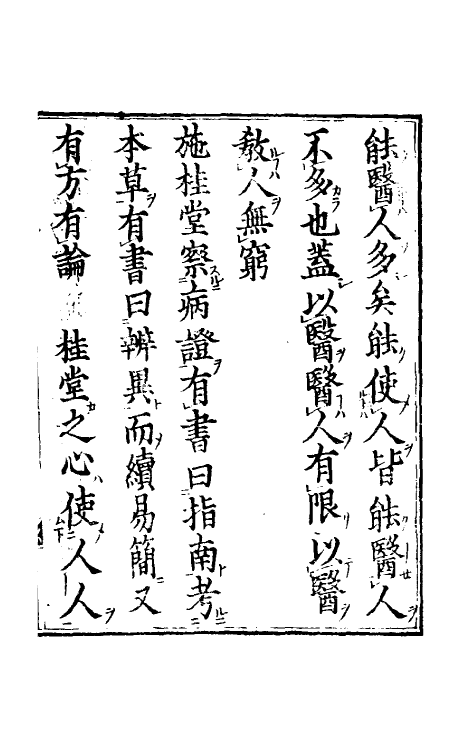 能醫人多矣能使人皆能醫人
不多也蓋以醫醫人有限以醫
教人無窮
施桂堂察病證有書曰指南考
本草有書曰辨異而續易簡又
有方有論桂堂之心使人人